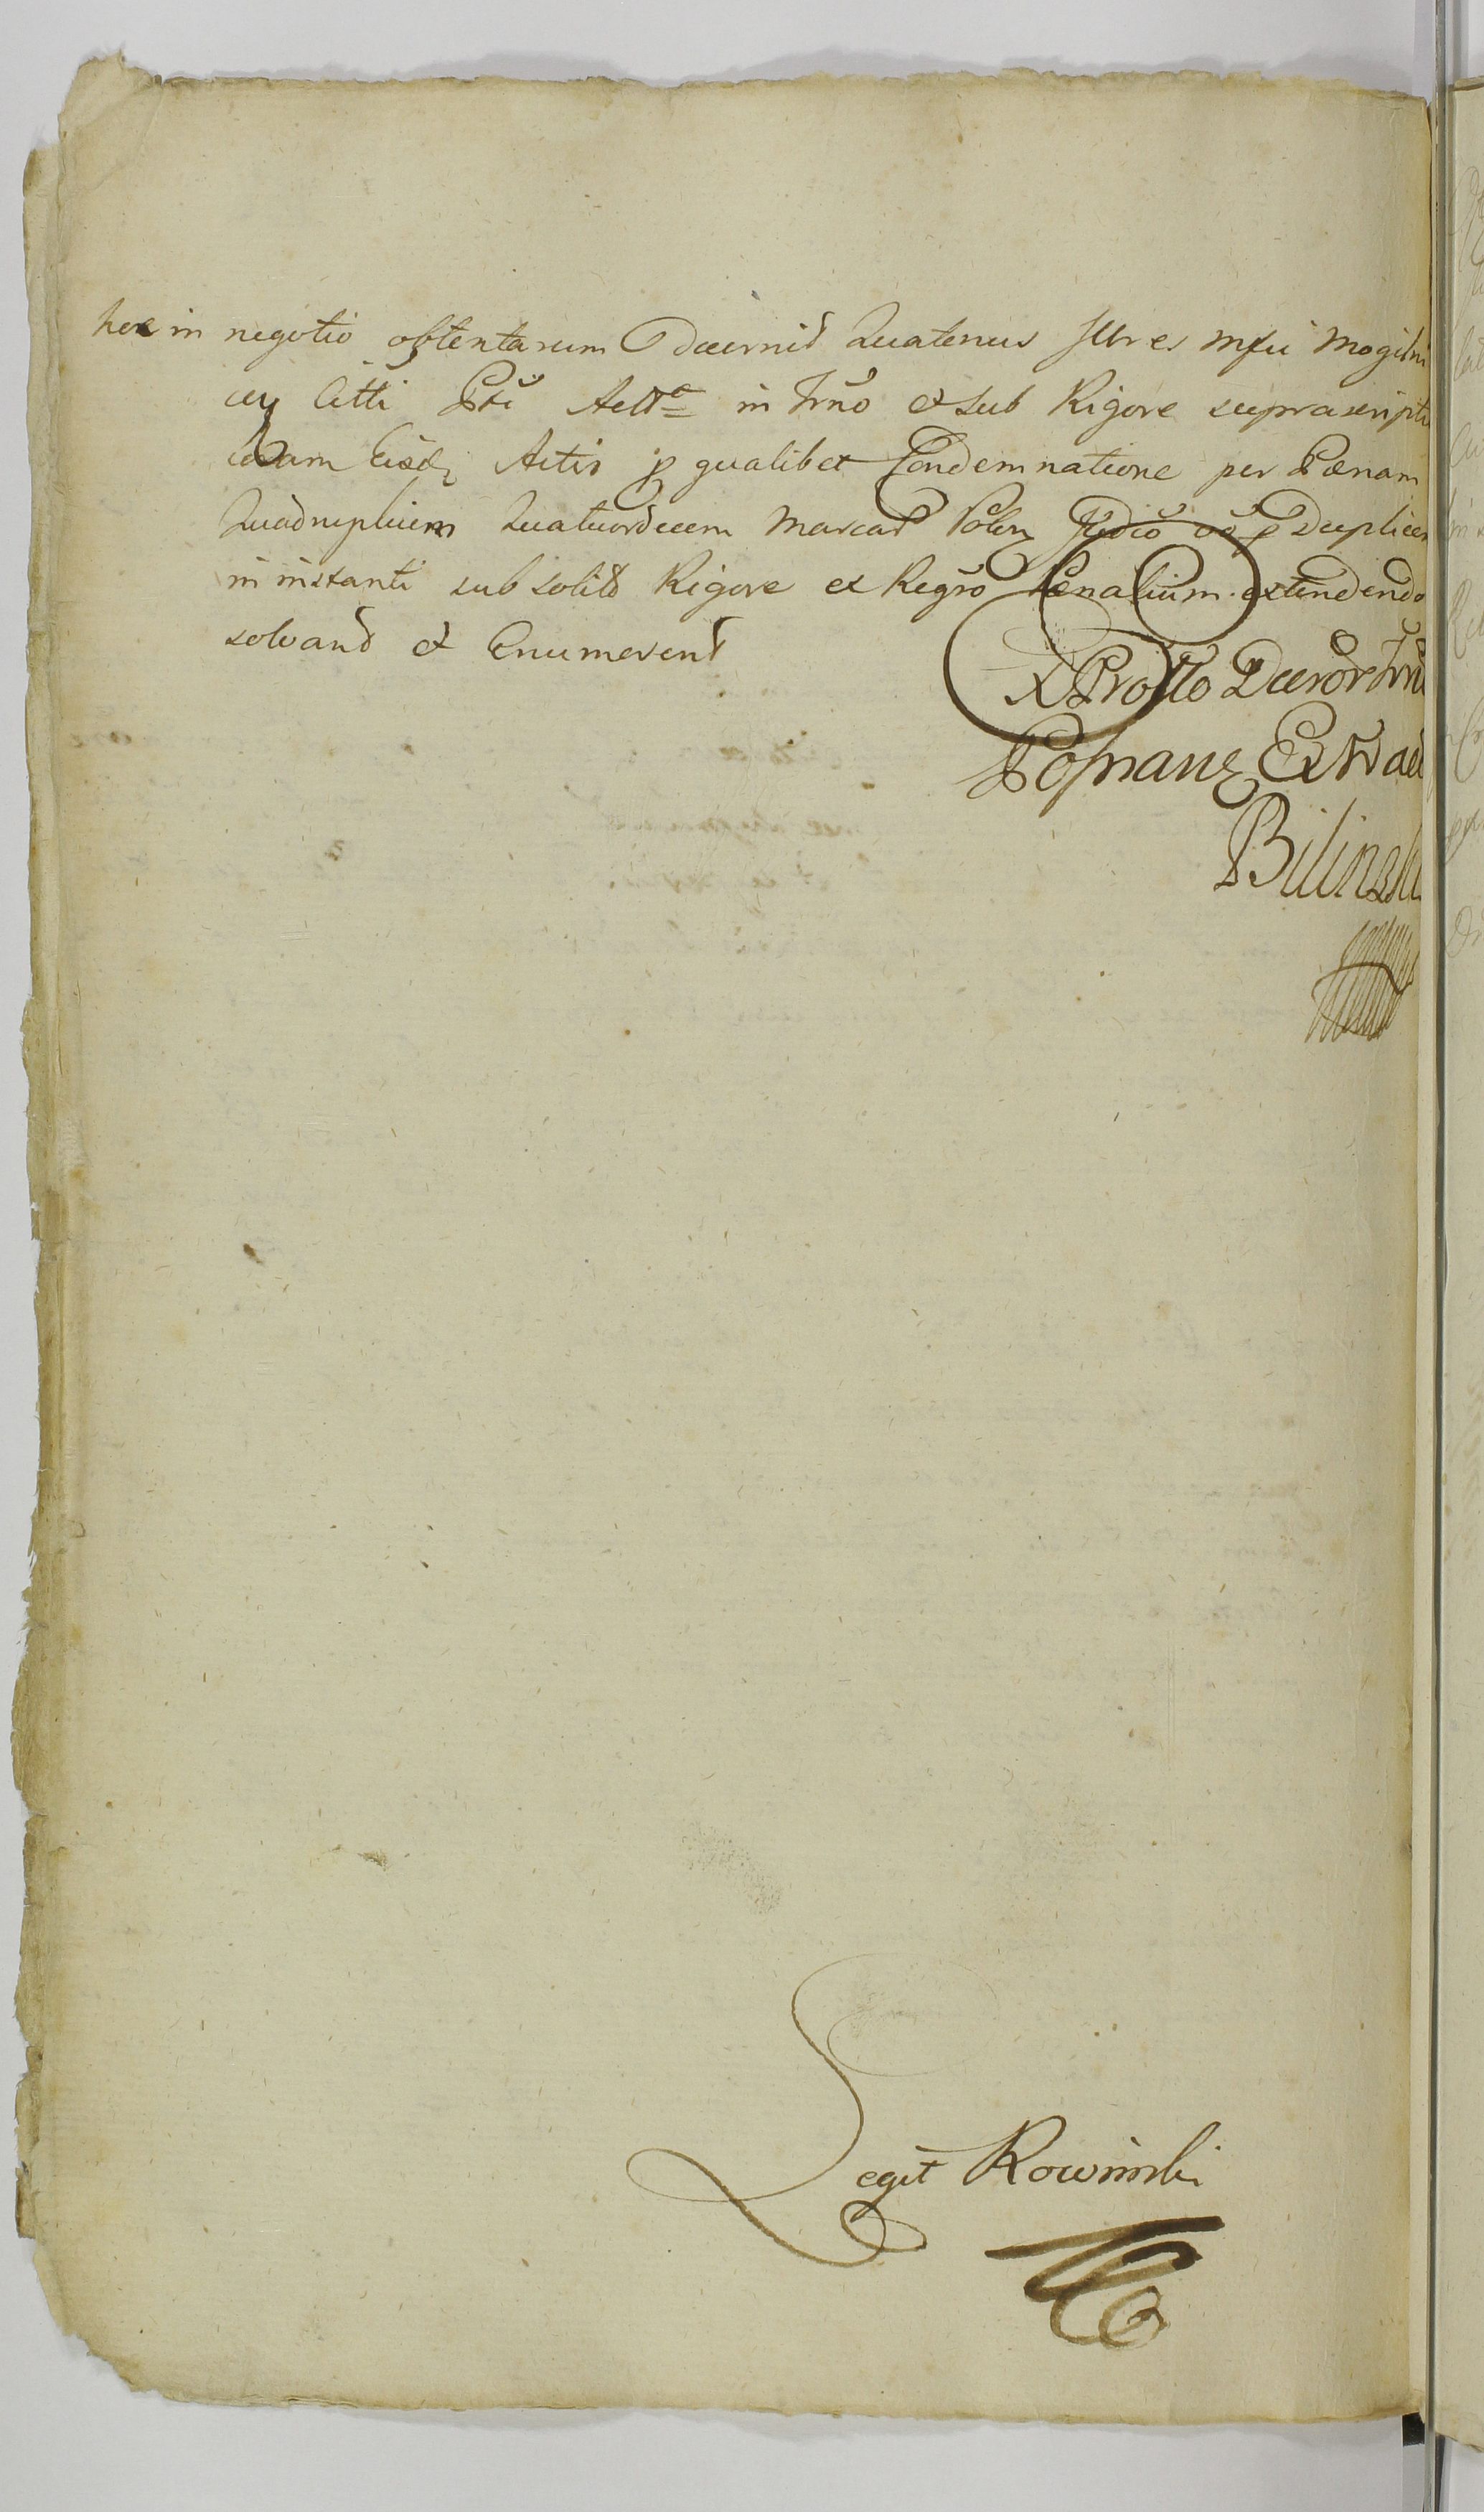 hoc in negotio obtentarum Decernit Quatenus Illres Mfci Mogilni
cey Citti Pti Act in Trno et sub Rigore suprascripto
Eisd Actis p qualibet Condemnatione per Pœnam
Quadruplicem Quatuordecem Marcas Polon Judcio vo p Duplicem
in instanti sub solito Rigore ex Regro Pœnalium extendendo
solvant et Enumerent
X Protllo Decror Trnl
Posnanz Extrad
Bilinski
Legit Rowinski